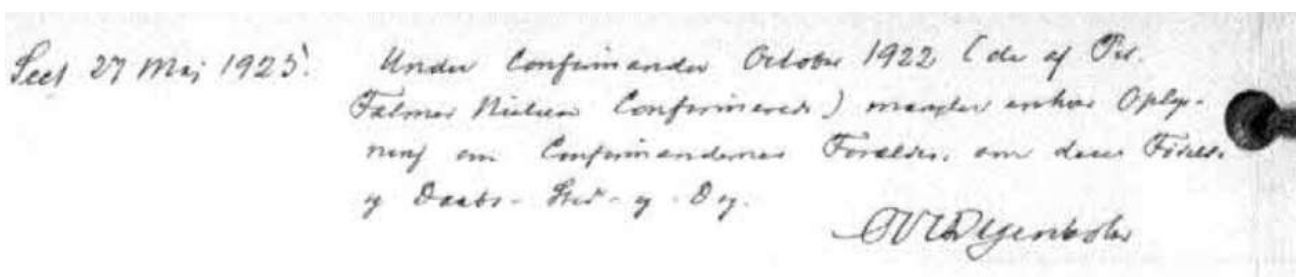 Seet 27 Maj 1925. Under Confirmander October 1922 (de af Psr.
Falmer Nielsen Confirmerede) mangler enhver Oplys-
ning om Confirmandernes Forældre, om deres Fødsels-
og Daabs-Sted-og-Dag.